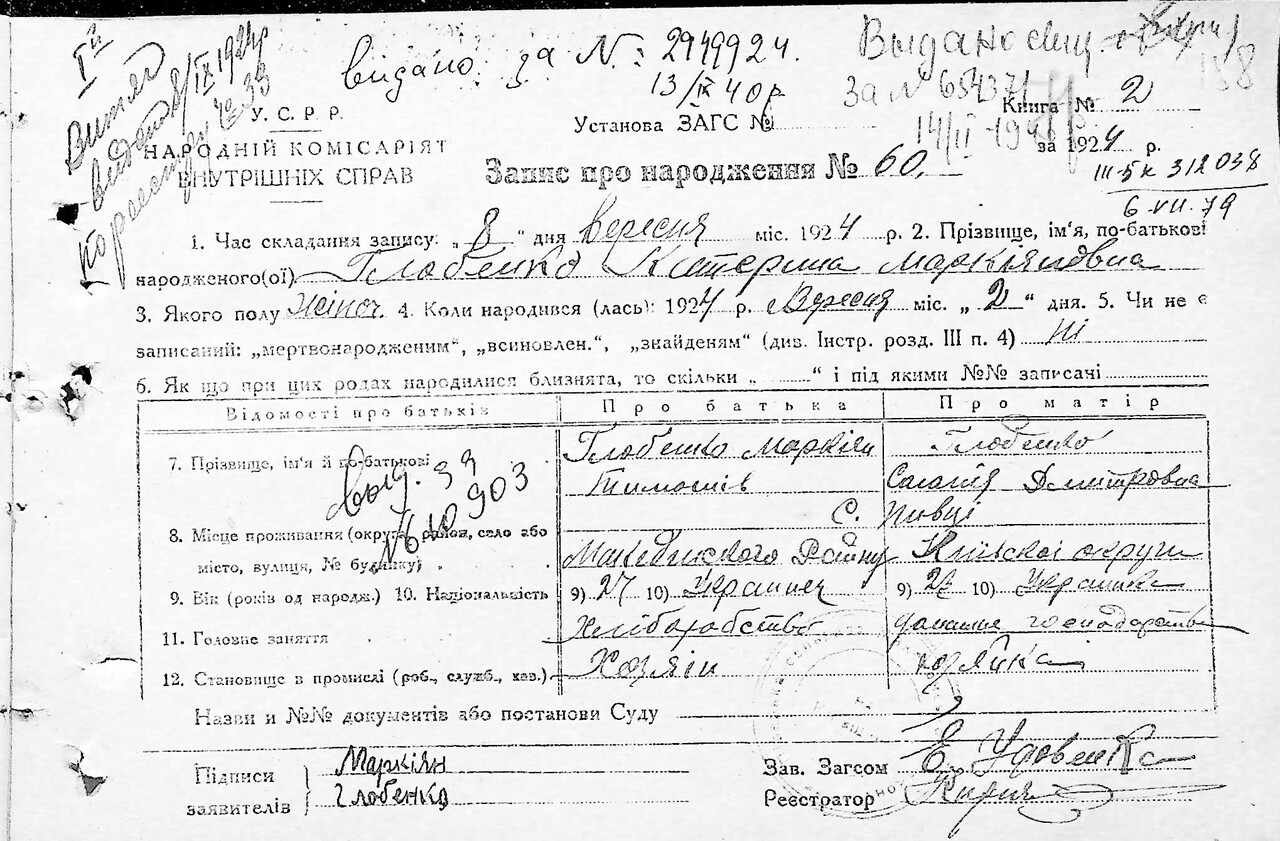 Ій
Витяг
видат 8/IX 1924р
по реестру № 33
видано за N: 2949924.
13/IX 40 р
Выдано
За N 654371
14/II-194
158
У. С. Р. Р.
НАРОДНІЙ КОМІСАРІЯТ
ВНУТРІШНІХ СПРАВ
Установа ЗАГС №
Книга № 2
за 1924 р.
Запис про народження № 60.
III-БК 312038
6-VII.79
1. Час складання запису: „ 8 “ дня Вересня міс. 1924 р. 2. Прізвище, ім'я, по-батькові
народженого(ої) Глобенко Катерина Маркіяновна
3. Якого полу жіноч. 4. Коли народився (лась): 1924 р. Вересня міс. „ 2 “ дня. 5. Чи не є
записаний: „мертвонародженим“, „всиновлен.“, „знайденям“ (див. Інстр. розд. III п. 4) ні
6. Як що при цих родах народилися близнята, то скільки „ “ і під якими №№ записачі
Відомості про батьків Про батька Про матір
7. Прізвище, ім'я й по-батькові Глобенко Маркіян Глобенко
Тимошів Дмитровна
39
903
8. Місце проживання (округа, район, село або с. Пивці
місто, вулиця, № будинку) Македонского Району Київскої округи
9. Вік (років од народж.) 10. Національність 9) 27 10) Украинец 9) 10) Украинка
11. Головне заняття Хліборобство домашне господарство
12. Становище в промислі (роб., служб., хаз.) Хозяїн хозяйка
Назви и №№ документів або постанови Суду
Підписи Маркіян
заявителів Глобенко
Зав. Загсом Е. Удовенко
Реєстратор